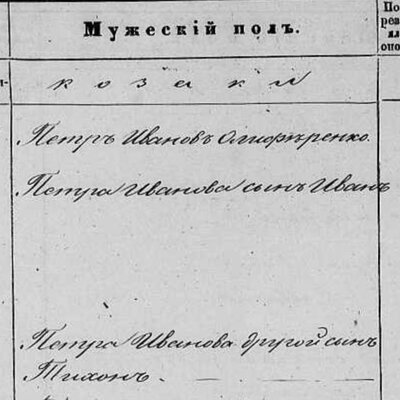 Мужескій полъ.
По
реа
ял
опо
козаки
Петръ Ивановъ Олифиренко.
Петра Иванова сынъ Иванъ
Петра Иванова другой сынъ
Тихонъ.